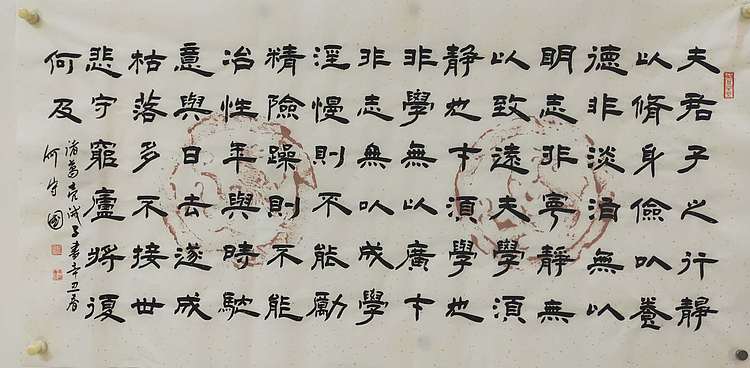 夫君子之行靜
以脩身儉以養
德非淡泊無以
明志非寧靜無
以致遠夫學須
靜也才須學也
非學無以廣才
非志無以成學
淫慢則不能勵
精險躁則不能
冶性年與時馳
意與日去遂成
枯落多不接世
悲守窮廬將復
何及
諸葛亮誡子書辛丑春
何守國